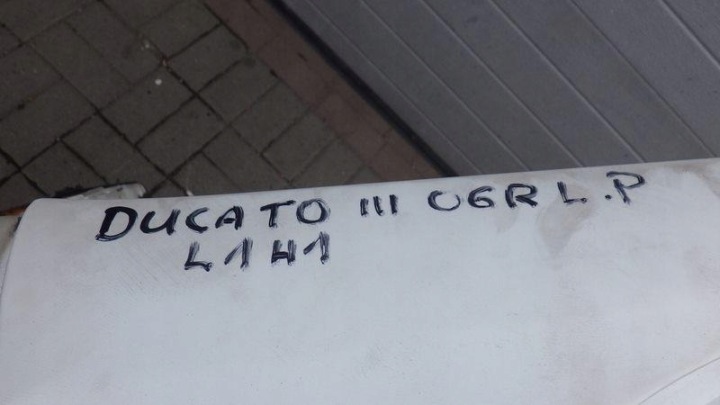 DUCATO III 06R L.P
L1H1